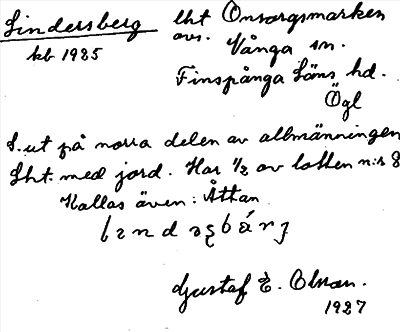 Lindersberg lht Onsorgsmarken
kb 1925 avs. Vånga sn.
Finspånga Läns hd.
Ögl
L. ut på norra delen av allmänningen
Lht. med jord. Har 1/2 av lotten n:r 8
Kallas även: Åttan
Gustaf E. Olson.
1927